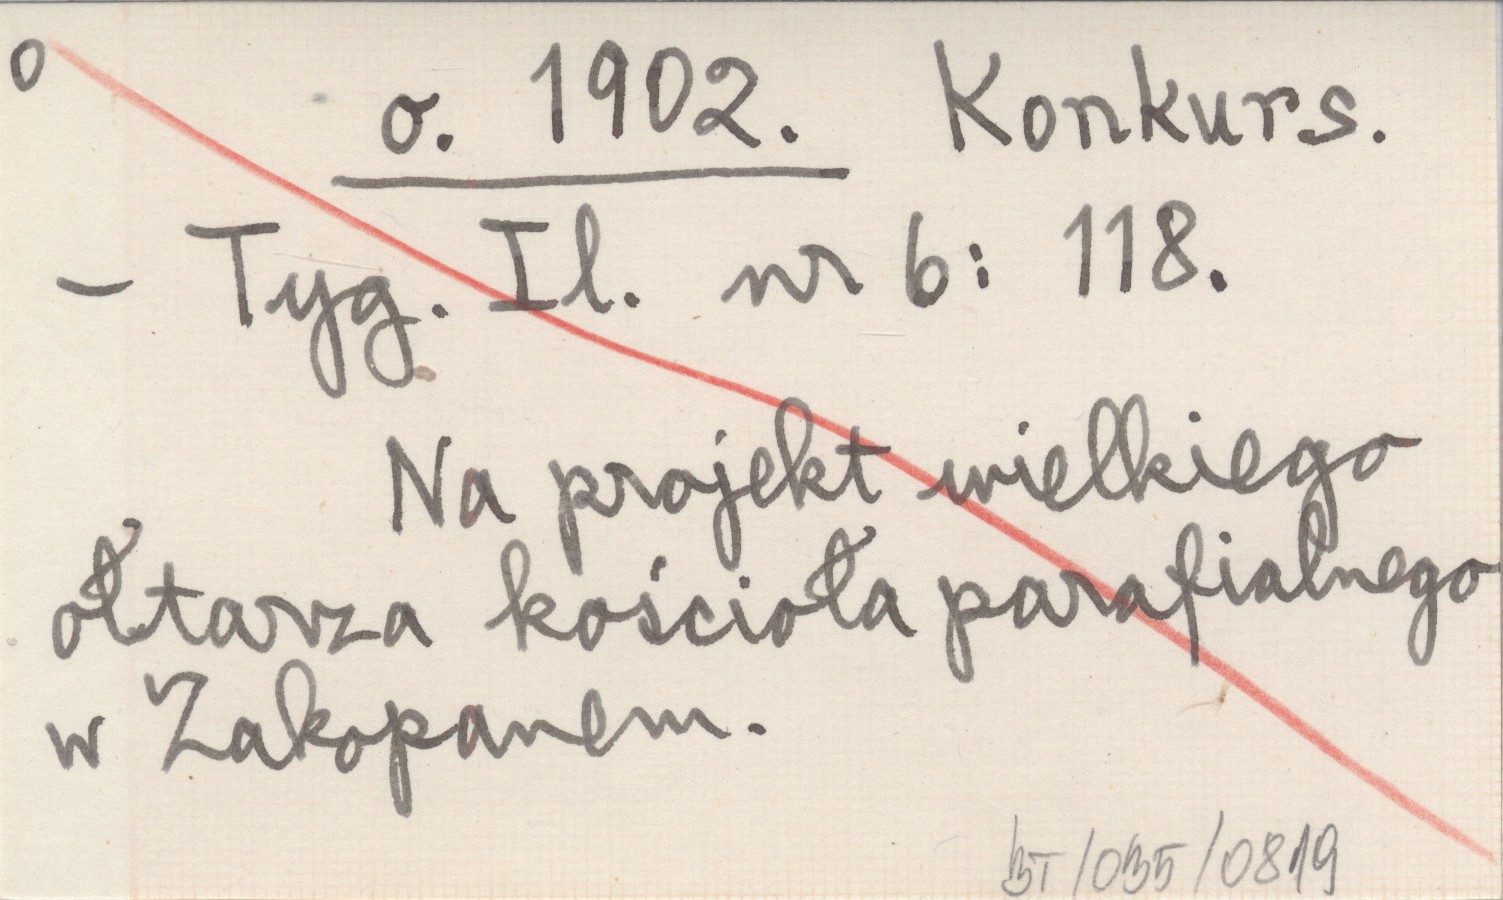 o
o. 1902. Konkurs.
- Tyg. Il. nr 6: 118.
Na projekt wielkiego
ołtarza kościoła parafialnego
w Zakopanem.
BT/035/0819